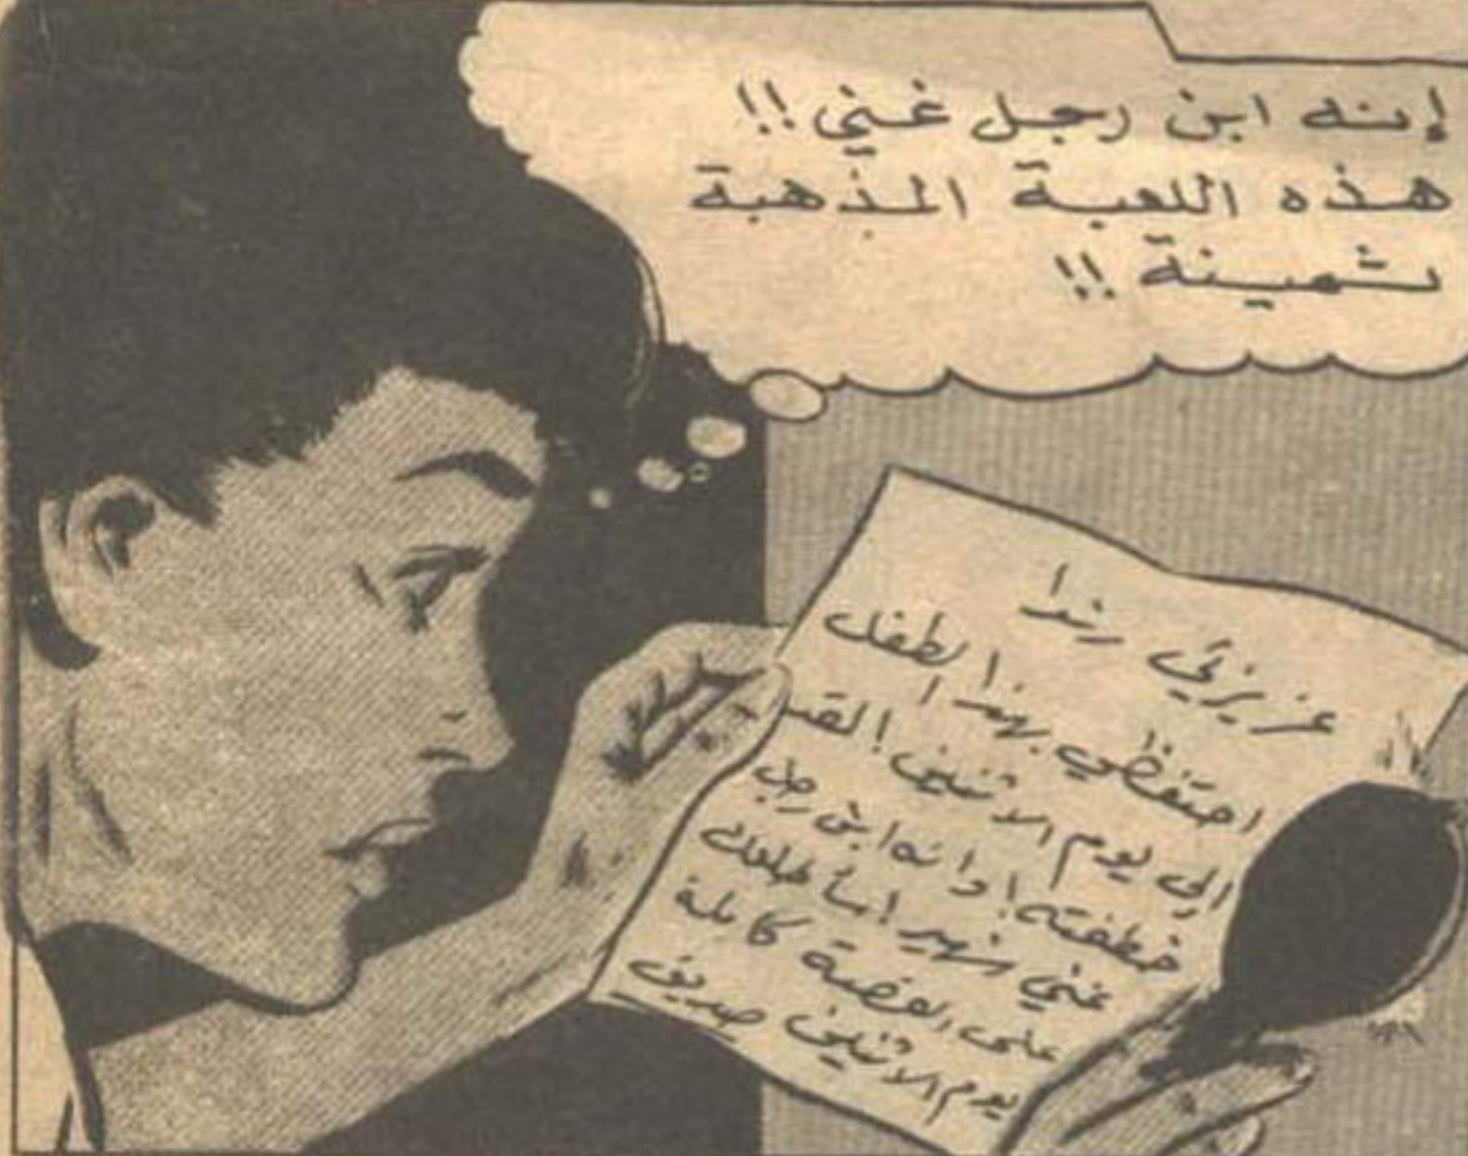 إنه ابن رجل غني !!
هذه اللعبة المذهبة
ثمينة !!
عزيزتي رندا
احتفظي بهذا الطفل
إلى يوم الاثنين القـ
خطفته! وانه ابن رجل
غني شهير سأطلعك
على القصة كاملة
يوم الاثنين صديق